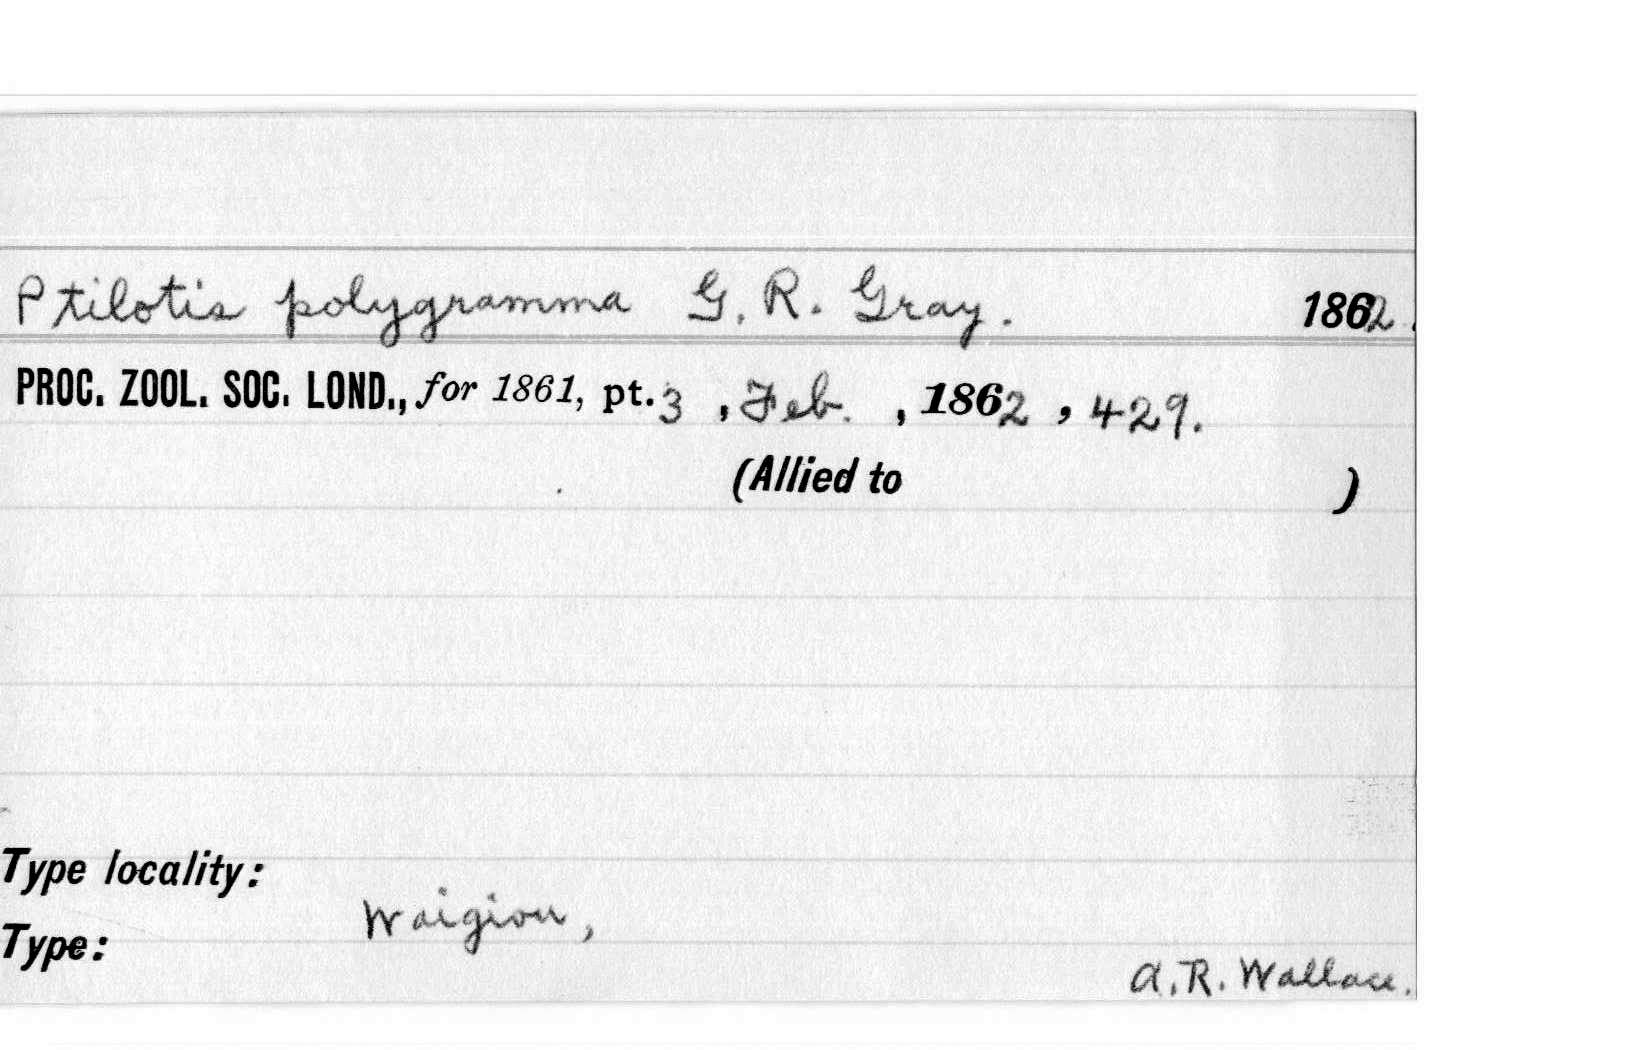 Ptilotis polygramma G. R. Gray. 1862.
PROC. ZOOL. SOC. LOND., for 1861, pt. 3 , Feb. , 1862 , 429.
(Allied to )
Type locality:
Waigiou,
Type:
A. R. Wallace.